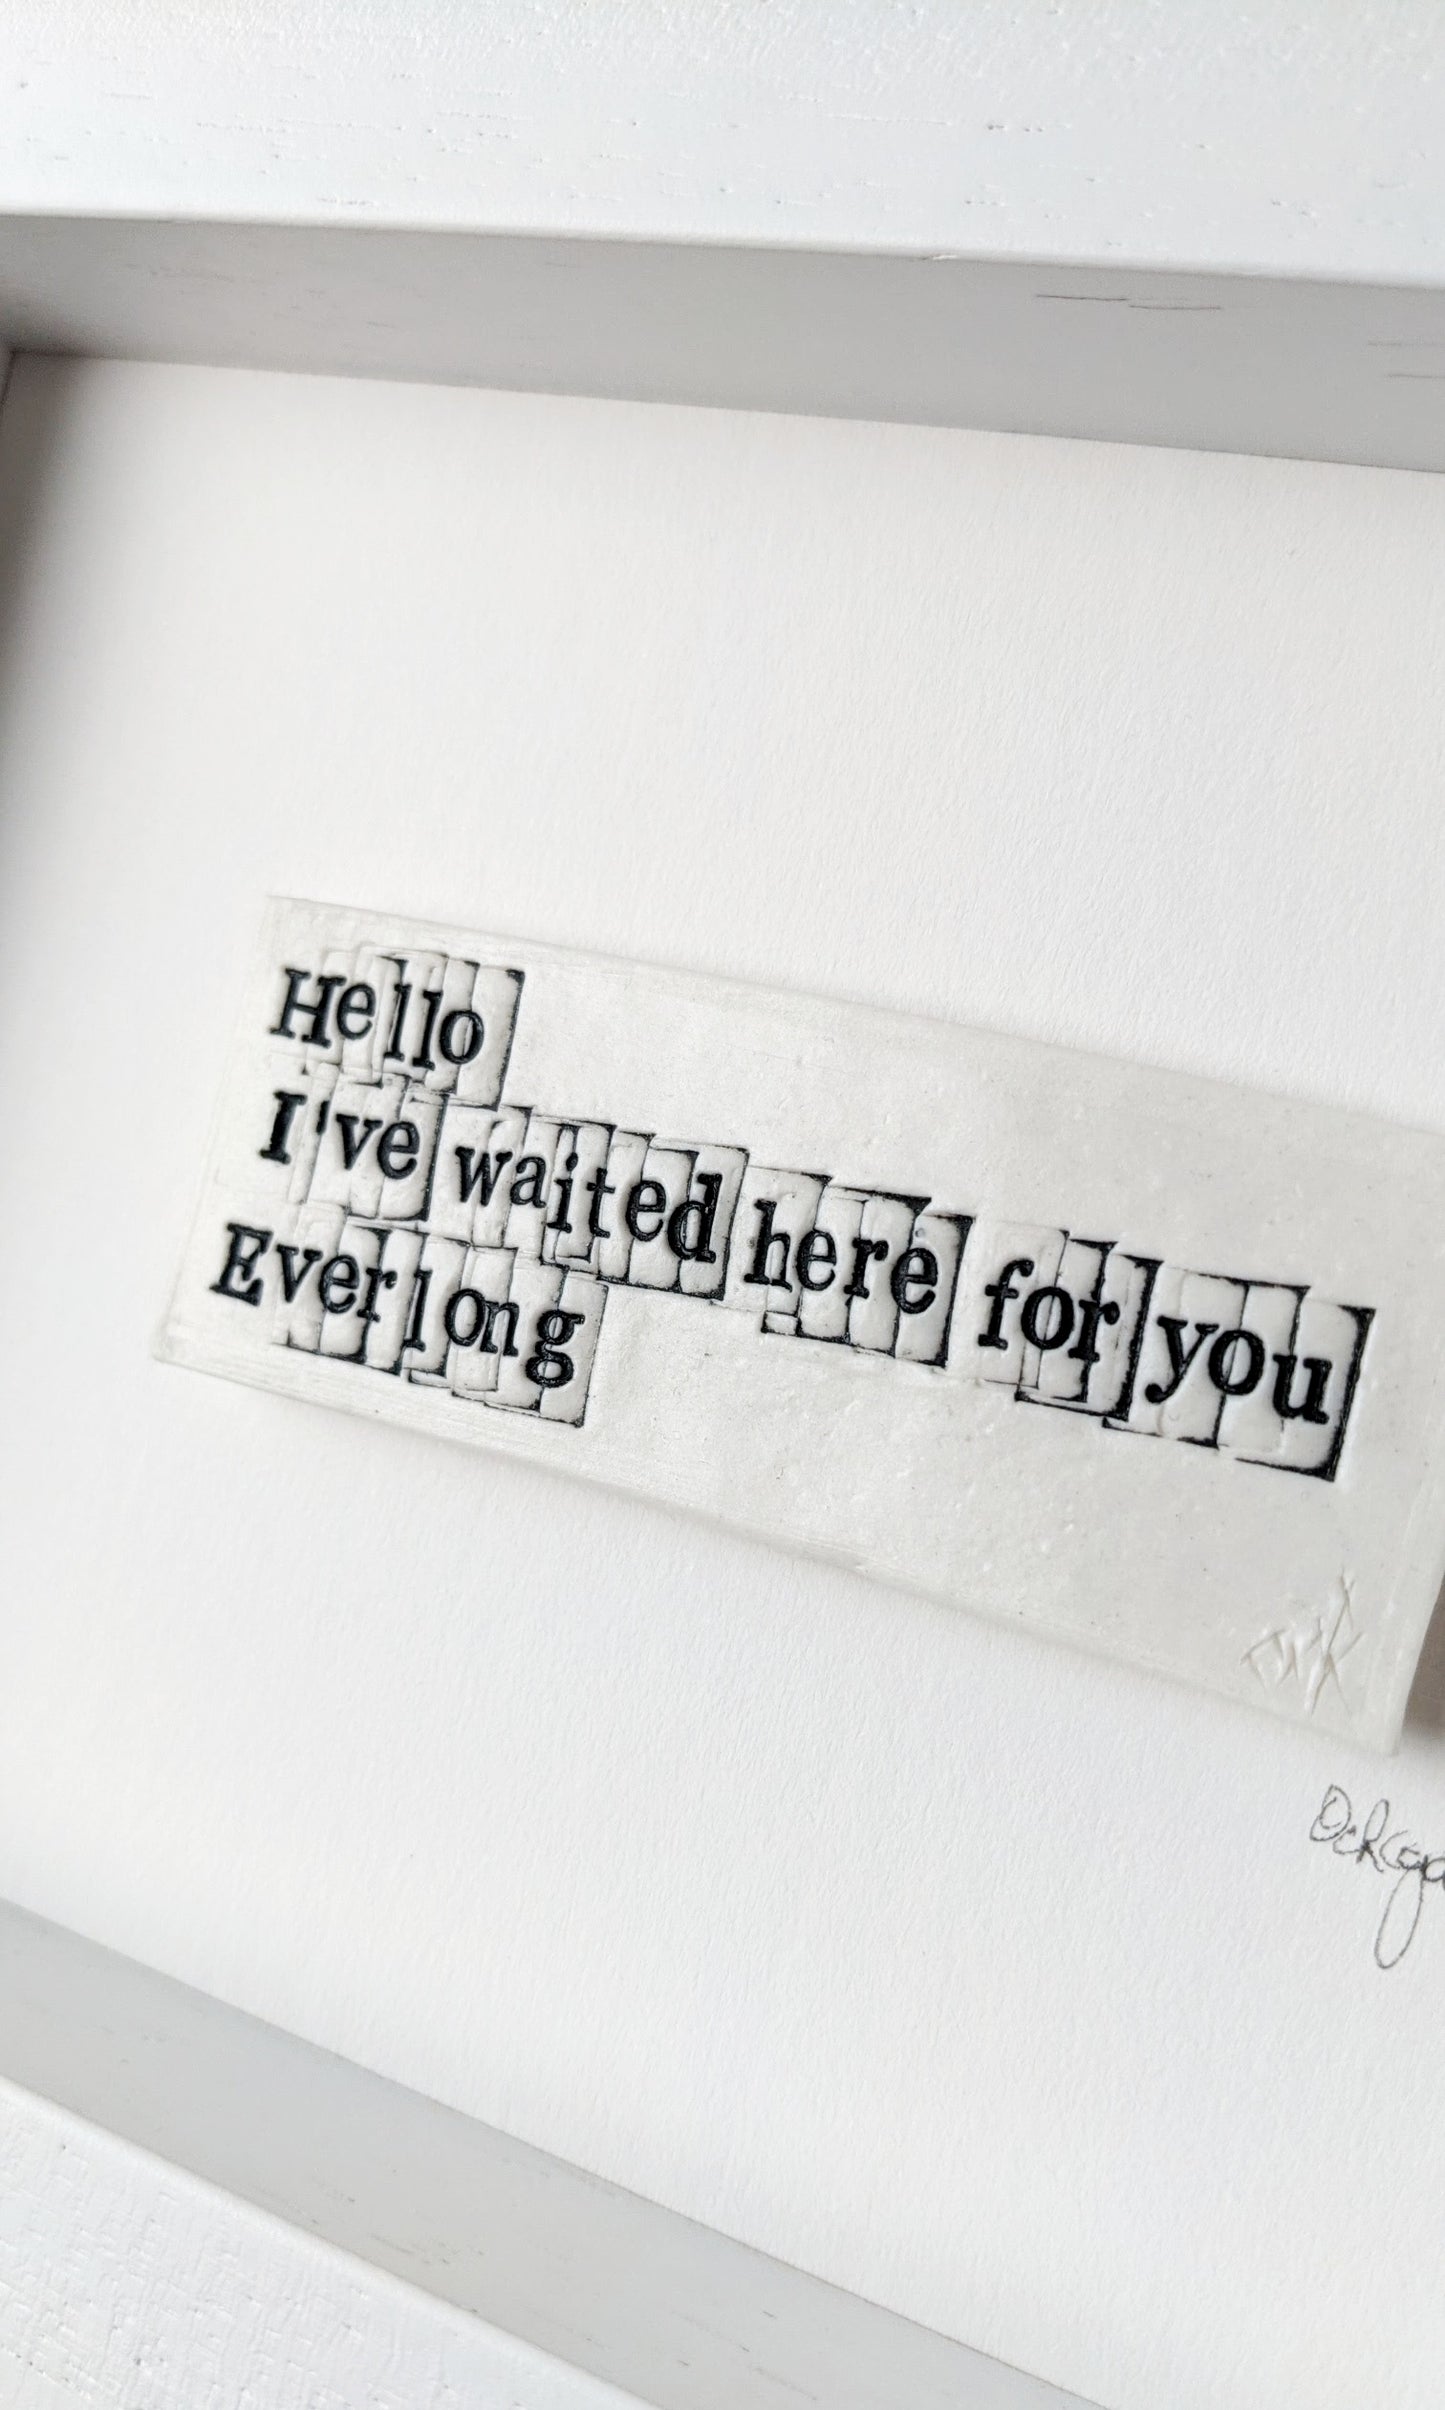 Hello
I've waited here for you
Everlong